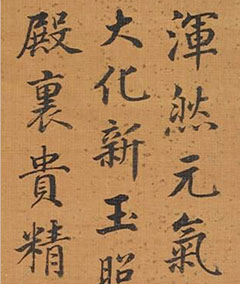 渾然元氣
大化新玉昭
殿裏貴精